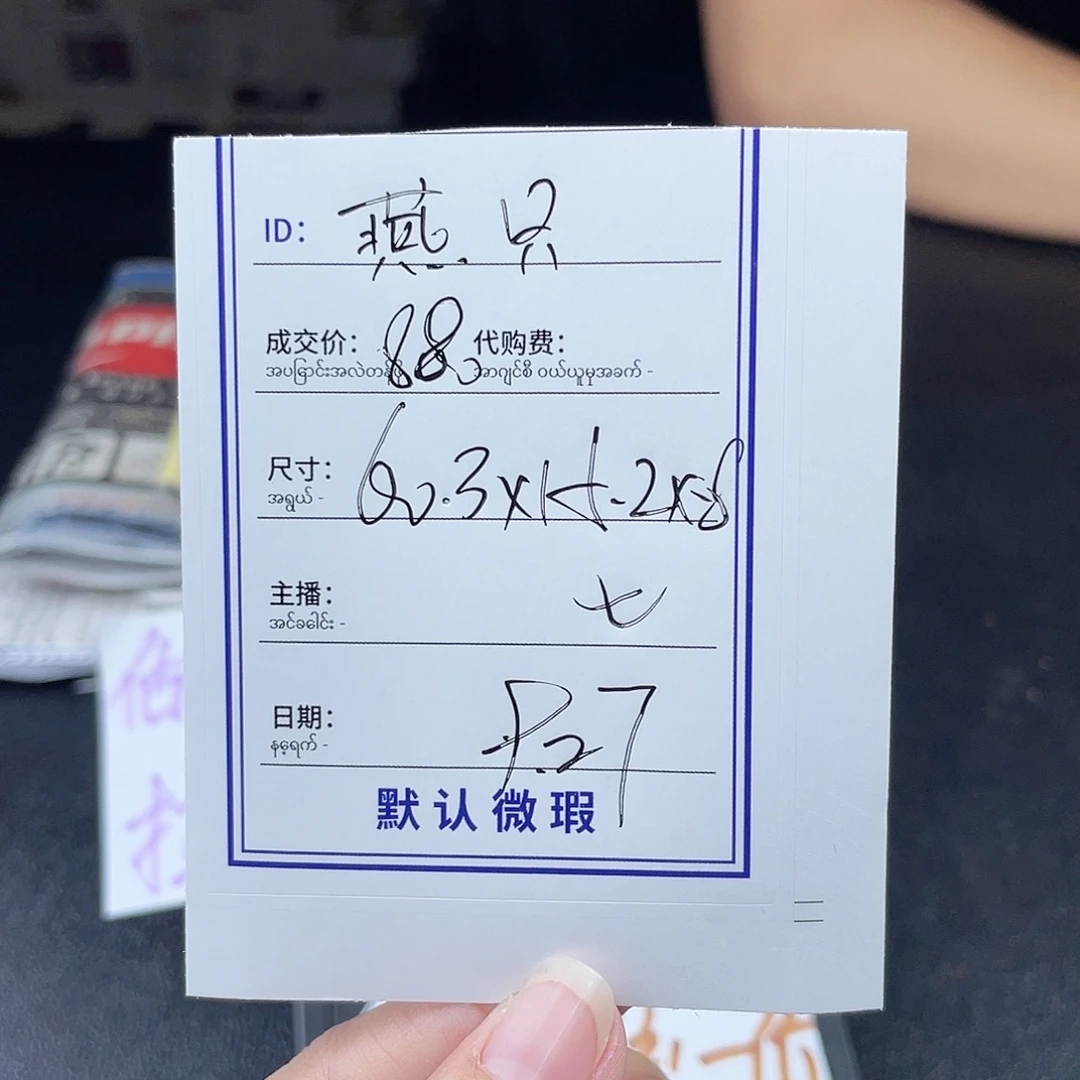 ID: 燕只
成交价: 88. 代购费:
အပြောင်းအလဲတန်ဖိုး အာဂျင်စီ ဝယ်ယူမှုအခက် -
尺寸: 60.3x15.2x8
အရွယ် -
主播: 七
အင်ခခေါင်း -
日期: 9.27
နေ့ရက် -
默认微瑕